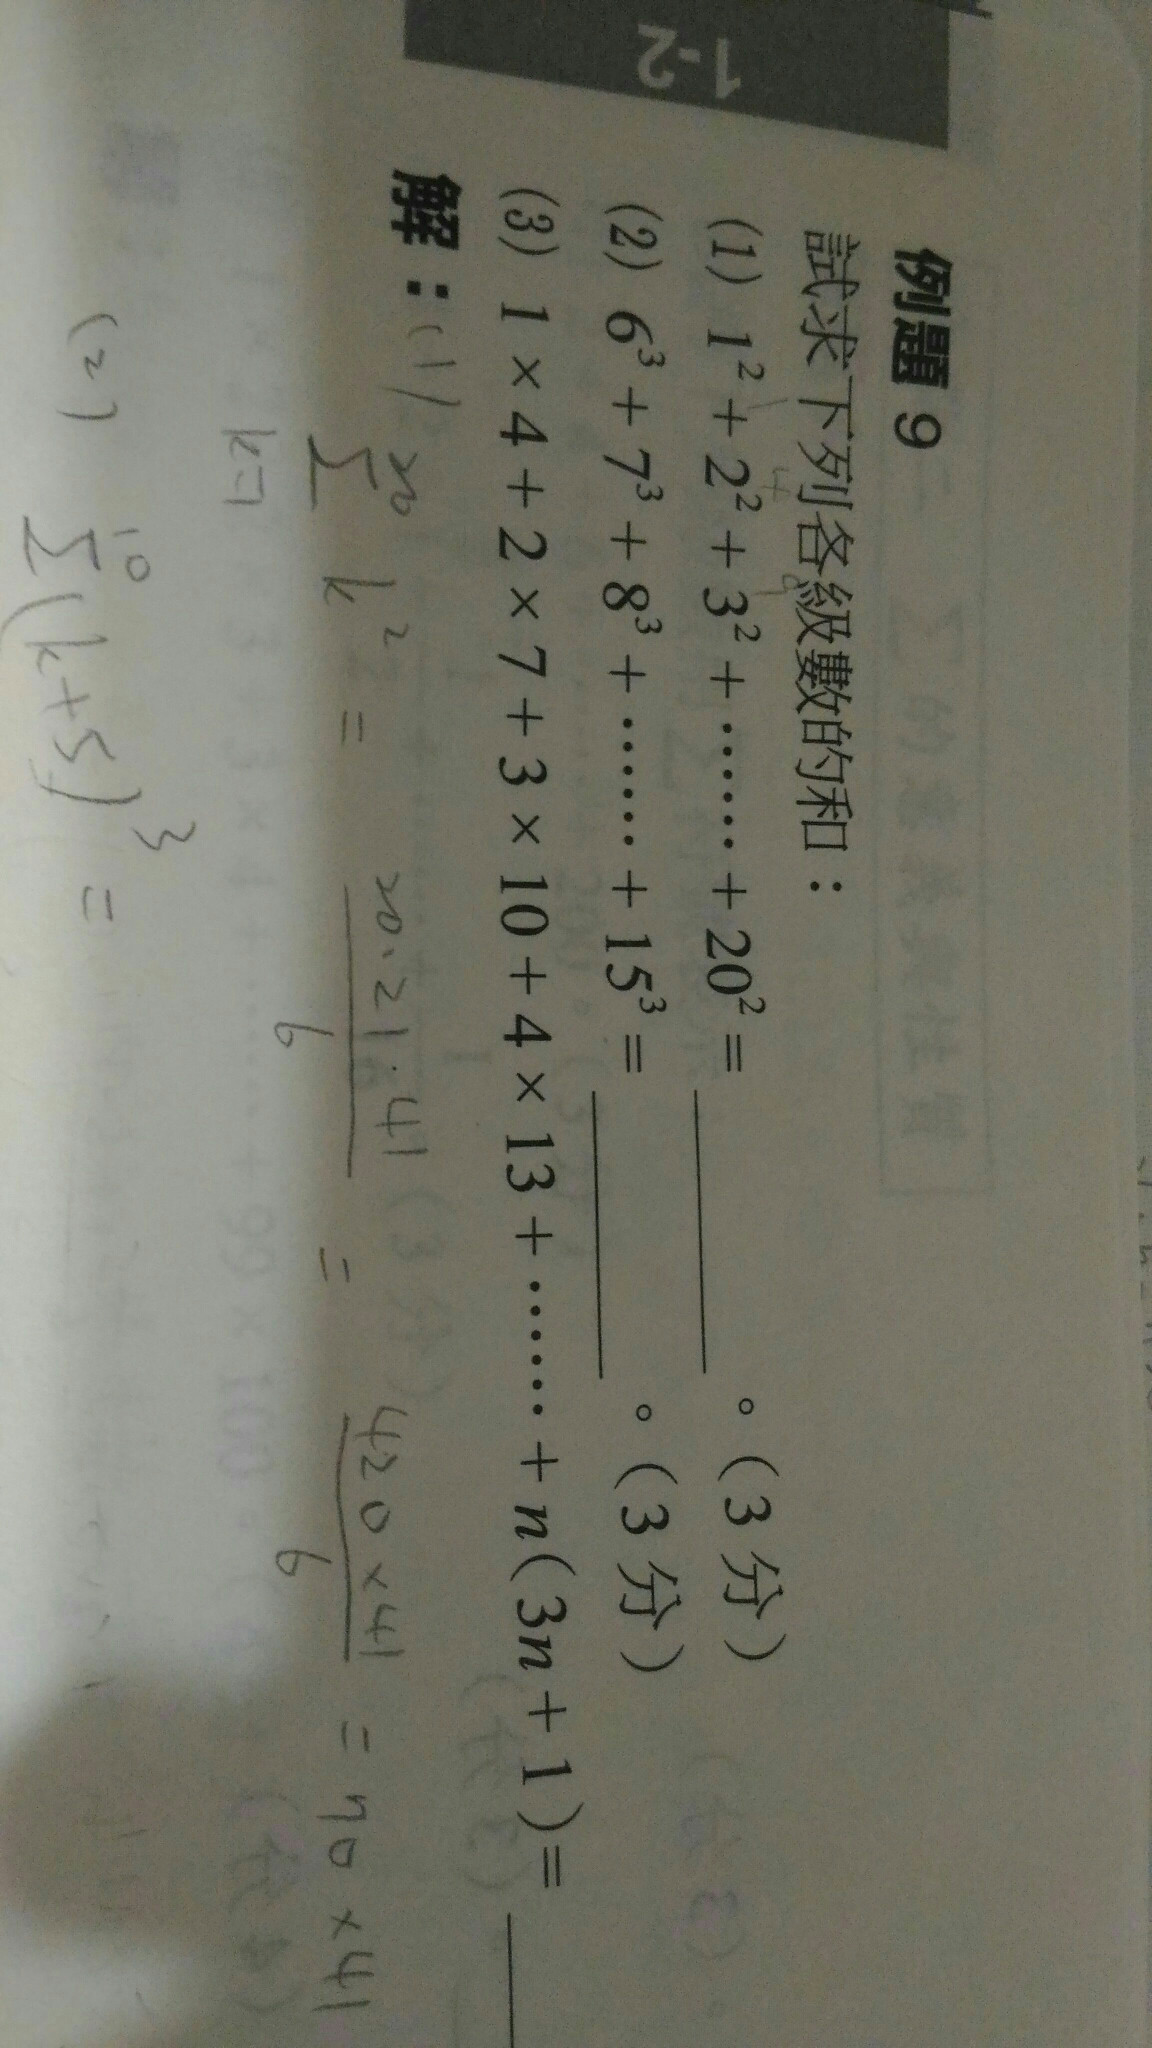 1-2
例題 9
試求下列各級數的和：
(1) 1² + 2² + 3² + …… + 20² = ＿＿＿。(3 分)
(2) 6³ + 7³ + 8³ + …… + 15³ = ＿＿＿。(3 分)
(3) 1 × 4 + 2 × 7 + 3 × 10 + 4 × 13 + …… + n(3n + 1) = ＿＿＿
解：(1) 20 Σ k=1 k² = 20·21·41 / 6 = 420×41 / 6 = 70×41
(2) 10 Σ (k+5)³ =